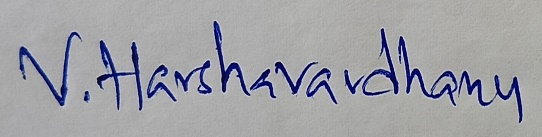 V. Harshavardhany